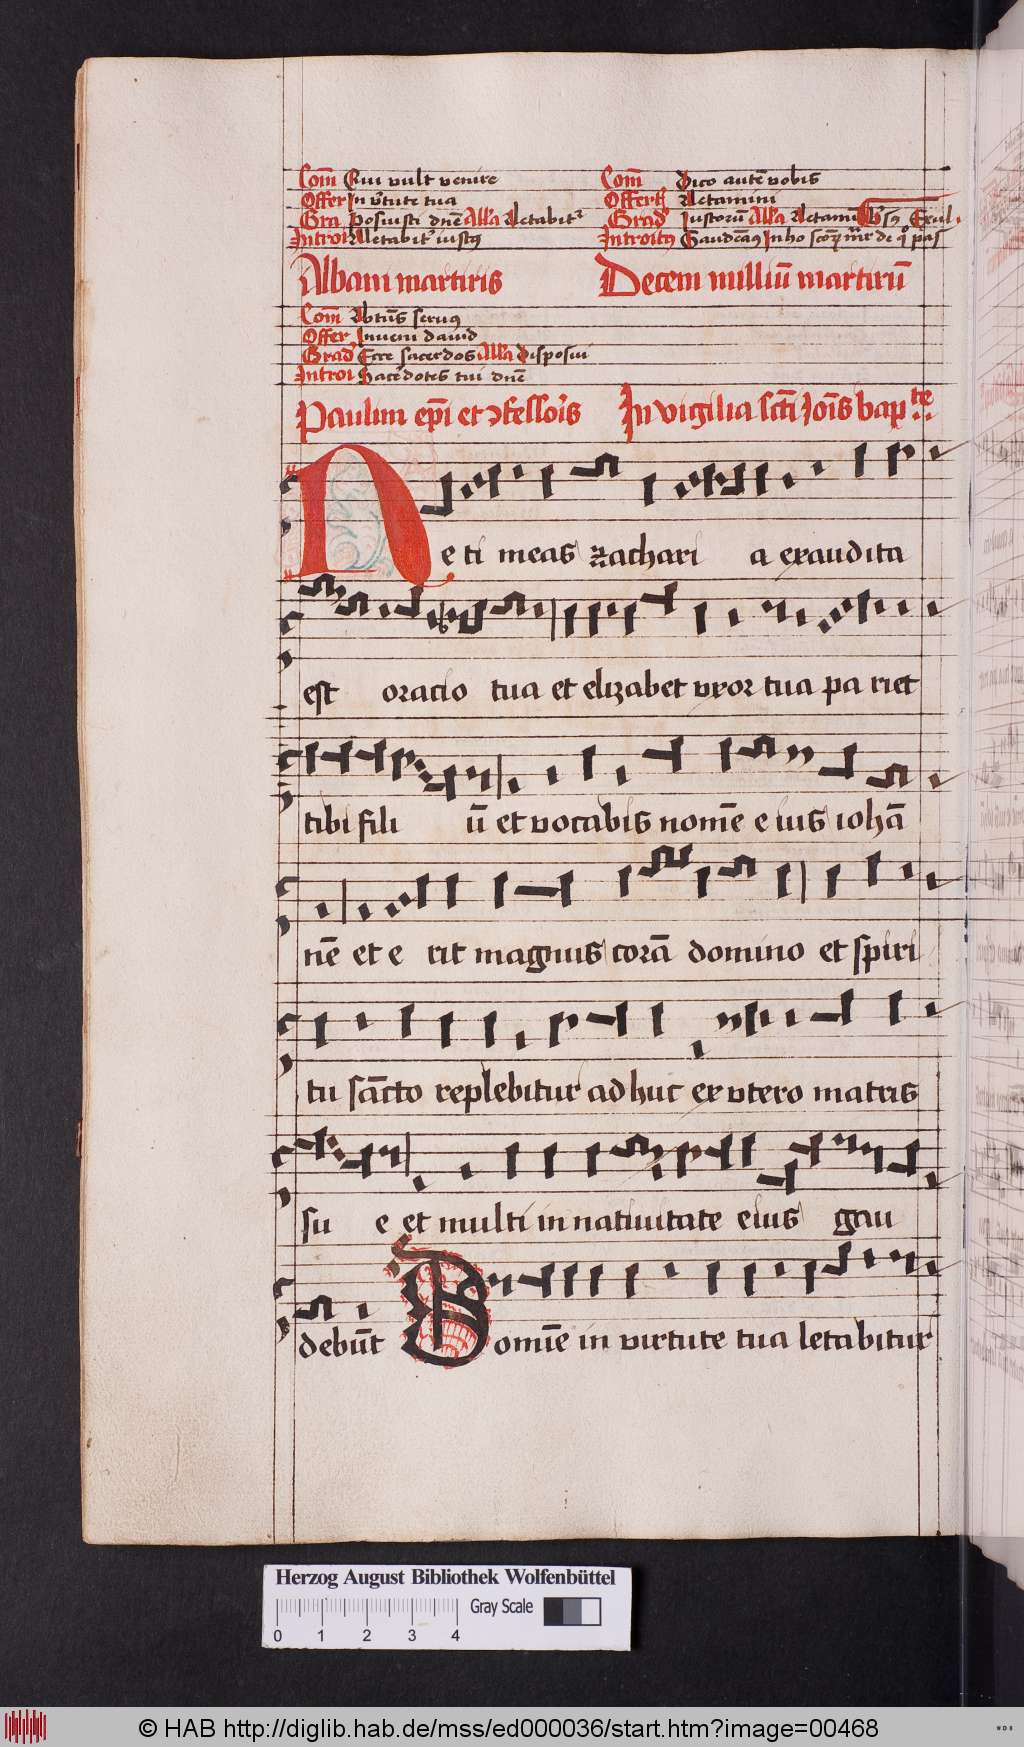 Com̄ Qui vult venire
Offer In v̓tute tua
Gra Posuisti dn̄e All̓a Letabit̓
Introi Letabit̓ iustꝰ
Com̄ Dico autē vobis
Offert̓ Letamini
Grad̓ Iustorū All̓a Letamī V̓sꝰ Exul
Introitꝰ Gaudeāꝰ
Albani martiris
Decem milliū martirū
Com̄ Bt̄us seruꝰ
Offer Inueni dauid
Grad̓ Ecce sacerdos All̓a Disposui
Introi Sacerdotes tui dn̄e
Paulini ep̄i et ꝯfessor̓is
In vigilia sc̄ti Ioīs bapte
Ne ti meas zachari a exaudita
est oracio tua et elizabet vxor tua pa riet
tibi fili ū et vocabis nomē e ius iohā
nē et e rit magnus corā domino et spiri
tu sāc̄to replebitur adhuc ex vtero matris
su e et multi in natiuitate eius gau
debūt Domīe in virtute tua letabitur
Herzog August Bibliothek Wolfenbüttel
Gray Scale
0 1 2 3 4
© HAB http://diglib.hab.de/mss/ed000036/start.htm?image=00468